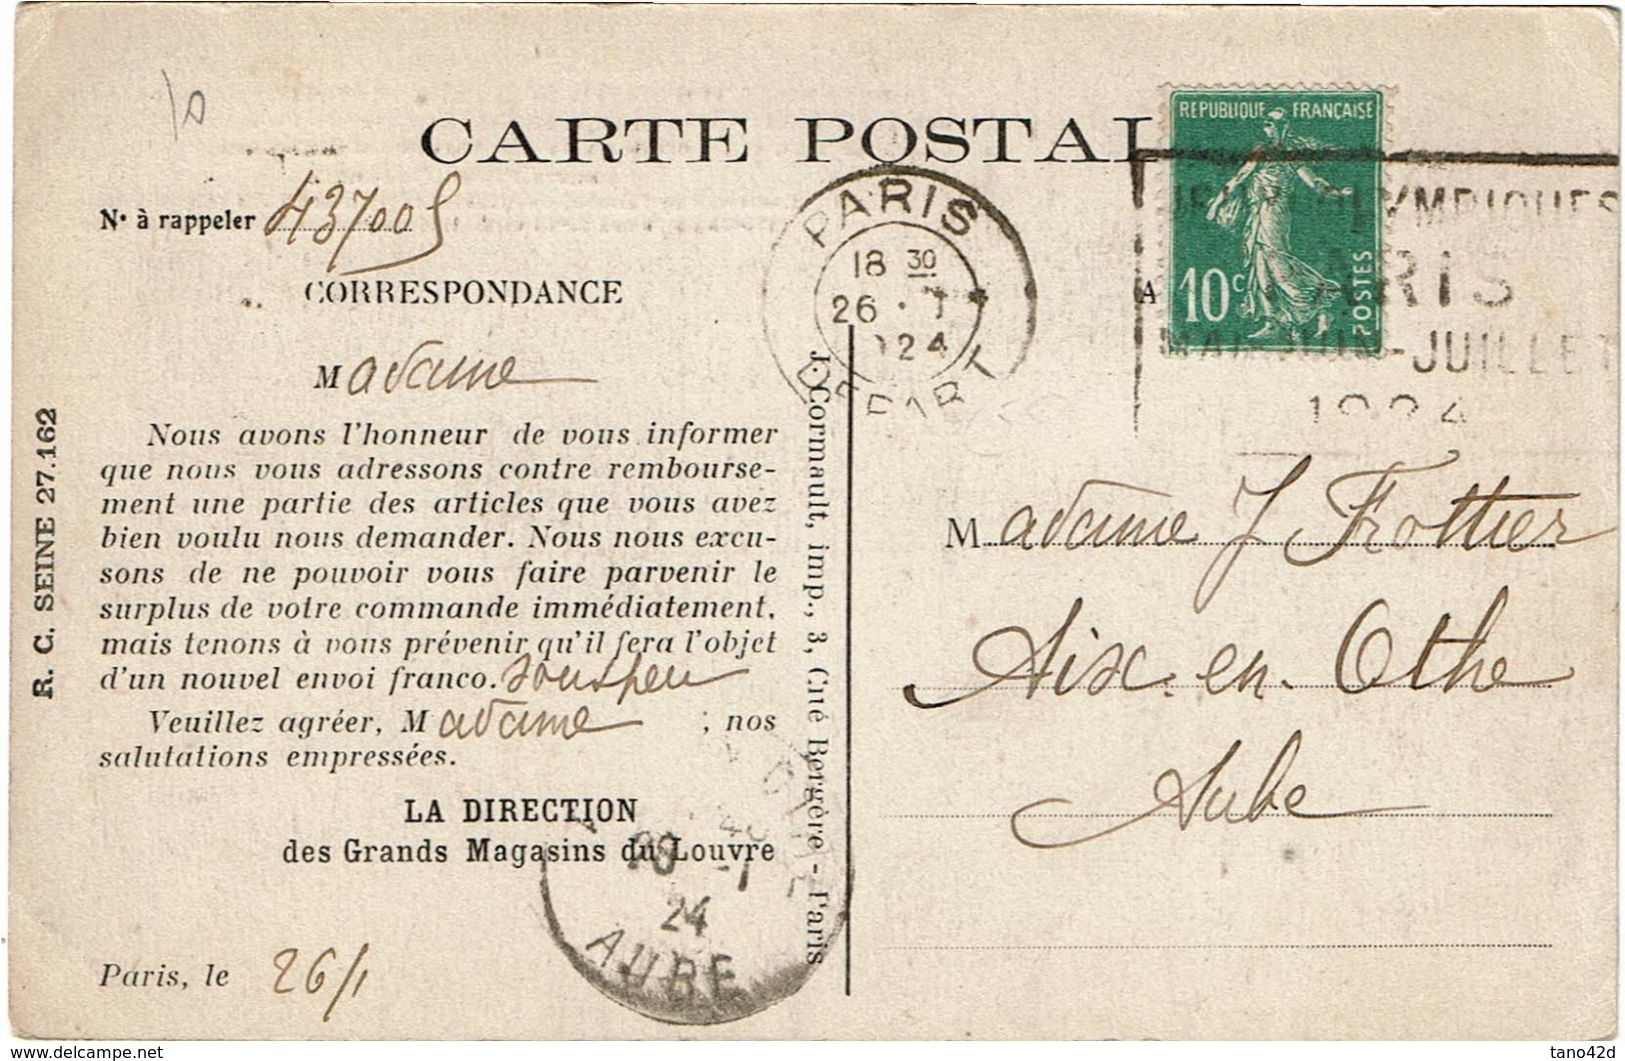 CARTE POSTALE
REPUBLIQUE FRANÇAISE
10c
POSTES
JEUX OLYMPIQUES
PARIS
MAI-JUIN-JUILLET
1924
PARIS
18 30
26 · 1
1924
DEPART
N° à rappeler 437005
CORRESPONDANCE
A
Madame
Nous avons l'honneur de vous informer
que nous vous adressons contre rembourse-
ment une partie des articles que vous avez
bien voulu nous demander. Nous nous excu-
sons de ne pouvoir vous faire parvenir le
surplus de votre commande immédiatement,
mais tenons à vous prévenir qu'il fera l'objet
d'un nouvel envoi franco. sous peu
Veuillez agréer, Madame ; nos
salutations empressées.
LA DIRECTION
des Grands Magasins du Louvre
Paris, le 26/1
R. C. SEINE 27.162
J. Cormault, imp., 3, Cité Bergère - Paris
Madame J Frottier
Aix-en-Othe
Aube
-1
24
AUBE
www.delcampe.net
tano42d